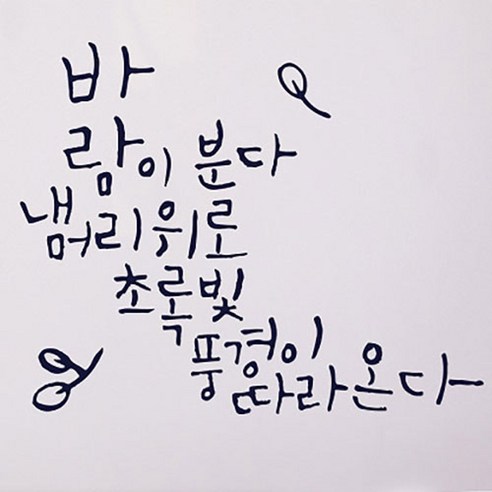 바
람이 분다
냄머리위로
초록빛
풍경이
따라온다